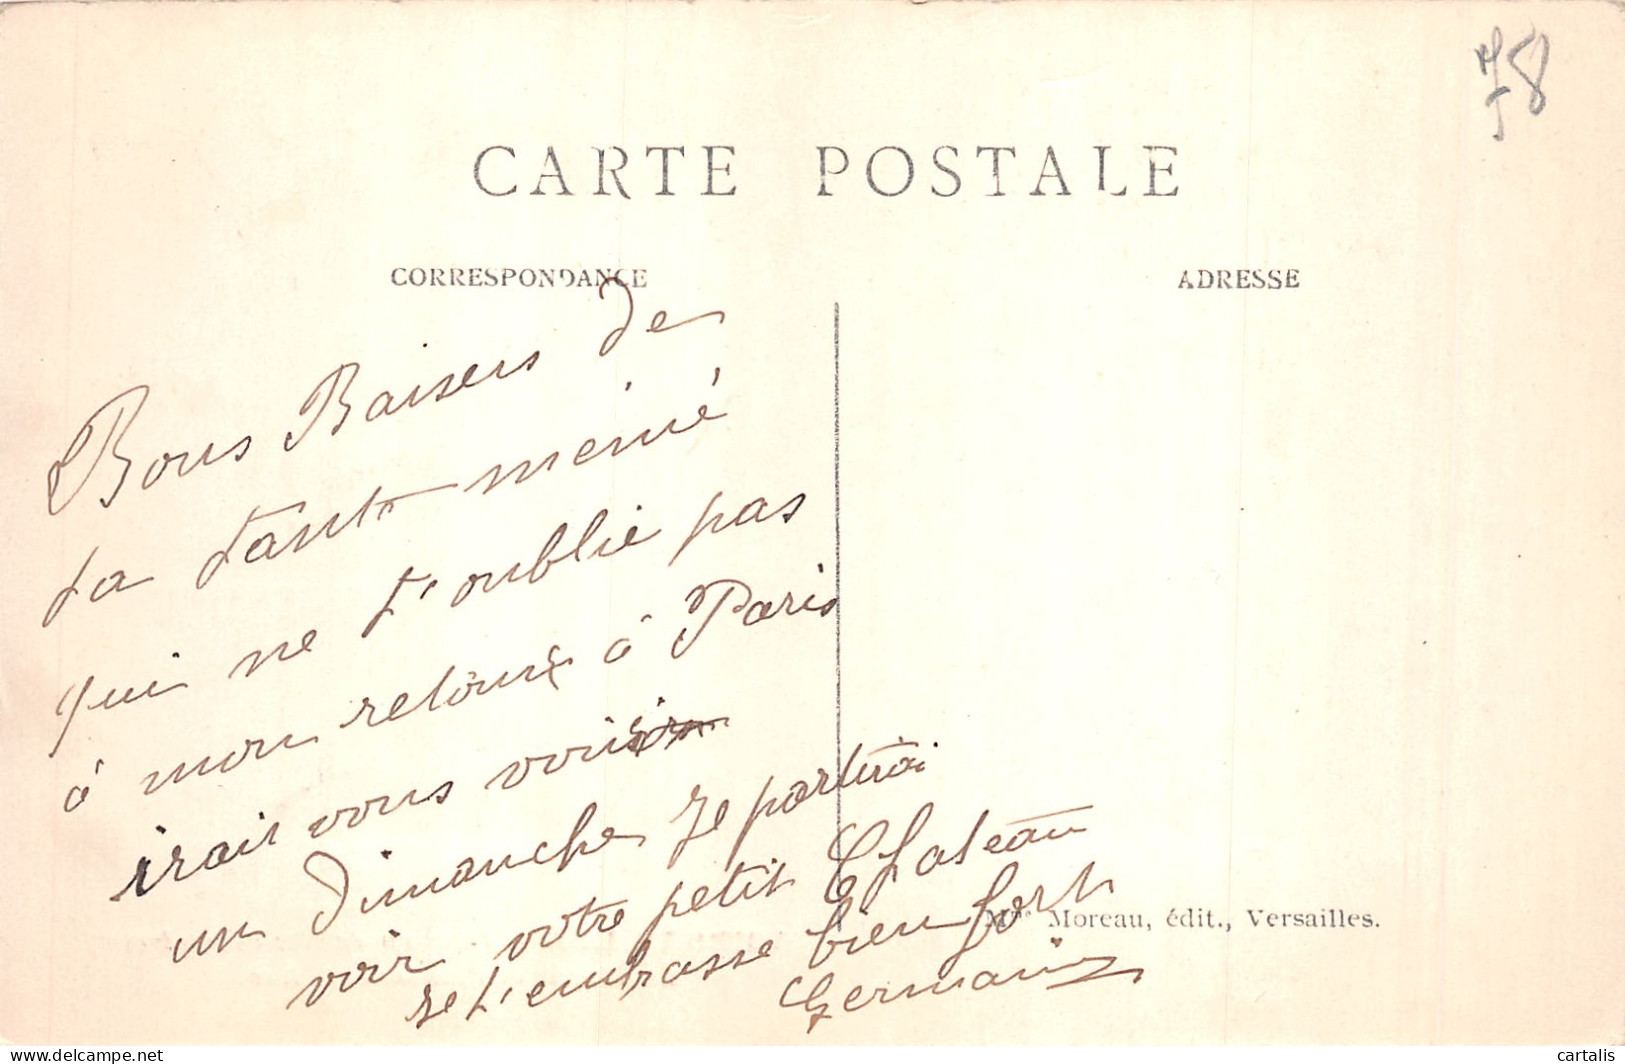 78
CARTE POSTALE
CORRESPONDANCE
ADRESSE
Bons Baisers de
ta tante
qui ne t'oublie pas
à mon retour à Paris
irais vous
un dimanche je partirai
voir votre petit Chateau
je t'embrasse bien fort
Germain
Mme Moreau, édit., Versailles.
delcampe.net
cartalis